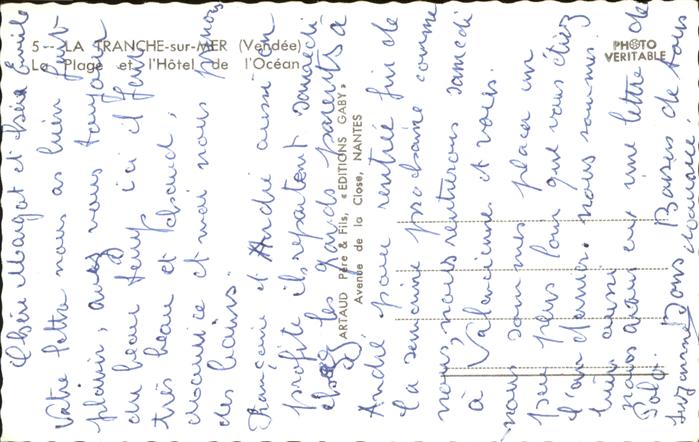 5 -- LA TRANCHE-sur-MER (Vendée)
La Plage et l'Hôtel de l'Océan
PHOTO
VERITABLE
ARTAUD Père & Fils, « EDITIONS GABY »
Avenue de la Close, NANTES
Chère Margot et Emile
votre lettre nous a bien fait
plaisir, avez vous toujours
du beau temps ici il fait
très beau et chaud,
Maurice et moi nous prenons
des bains.
Françoise et André aussi en
profite ils repartent samedi
chez les grands parents à
André, pour rentrée fin de
la semaine prochaine comme
nous, nous rentrerons samedi
à Valencienne et vous.
nous sommes placer un
peu plus loin que vous étiez
l'an dernier. nous sommes
bien aussi
nous avons eu une lettre de
Polo. Baisers de tous
Suzanne